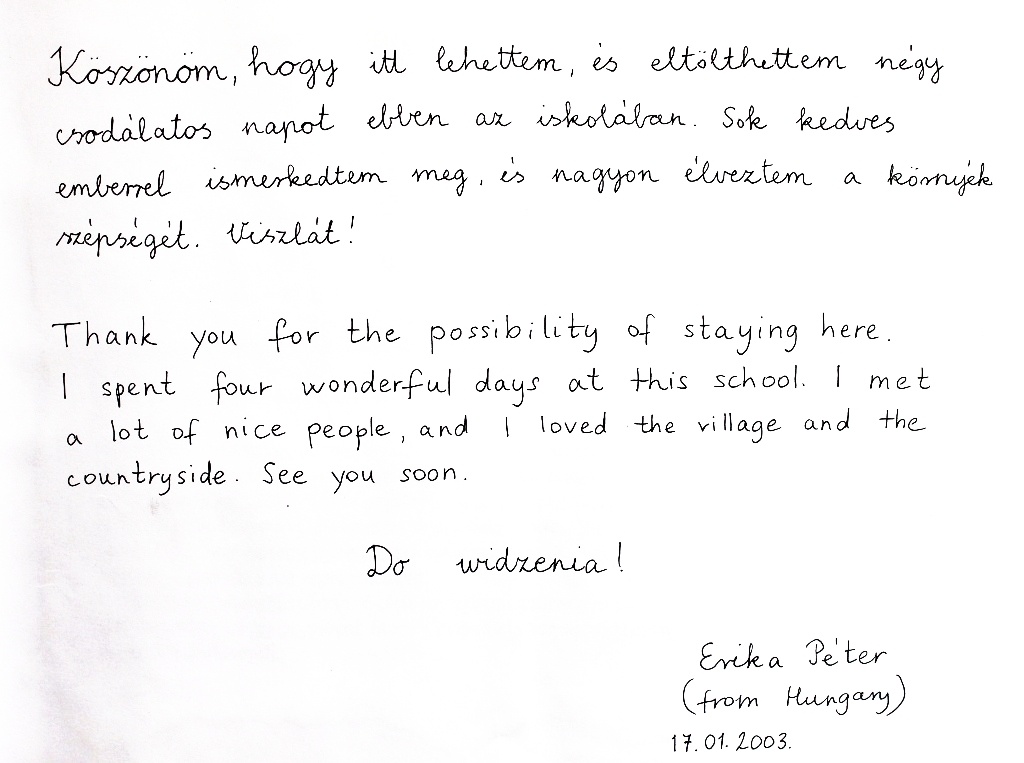 Köszönöm, hogy itt lehettem, és eltölthettem négy
csodálatos napot ebben az iskolában. Sok kedves
emberrel ismerkedtem meg, és nagyon élveztem a környék
szépségét. Viszlát!
Thank you for the possibility of staying here.
I spent four wonderful days at this school. I met
a lot of nice people, and I loved the village and the
countryside. See you soon.
Do widzenia!
Erika Péter
(from Hungary)
17.01.2003.